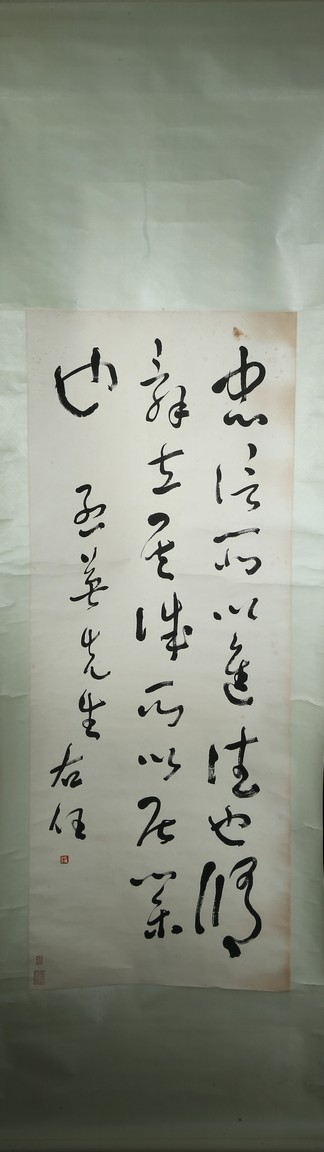 忠信所以進德也修
辭立其誠所以居業
也
孟英先生 右任